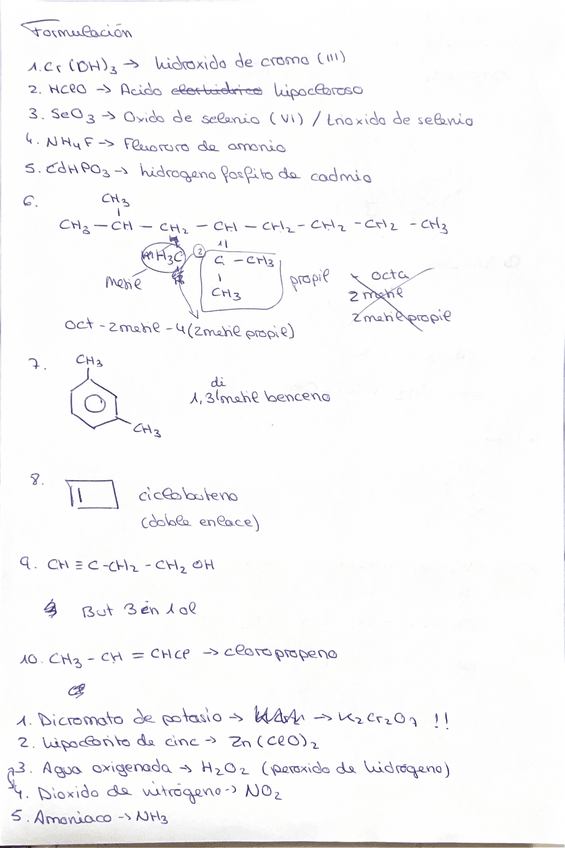 Formulación
1. Cr(OH)3 → hidroxido de cromo (III)
2. HClO → Acido clorhidrico hipocloroso
3. SeO3 → Oxido de selenio (VI) / trioxido de selenio
4. NH4F → Fluoruro de amonio
5. CdHPO3 → hidrogeno fosfito de cadmio
6.
CH3
CH3 – CH – CH2 – CH – CH2 – CH2 – CH2 – CH3
H3C 2 C – CH3
metil propil
CH3
octa
2 metil
2 metil propil
oct - 2metil - 4(2metil propil)
7. CH3
di
1,3 metil benceno
CH3
8. ciclobuteno
(doble enlace)
9. CH ≡ C - CH2 - CH2 OH
But 3 én 1 ol
10. CH3 - CH = CHCl → cloropropeno
1. Dicromato de potasio → → K2Cr2O7 !!
2. hipoclorito de cinc → Zn(ClO)2
3. Agua oxigenada → H2O2 (peroxido de hidrogeno)
4. Dioxido de nitrógeno → NO2
5. Amoniaco → NH3